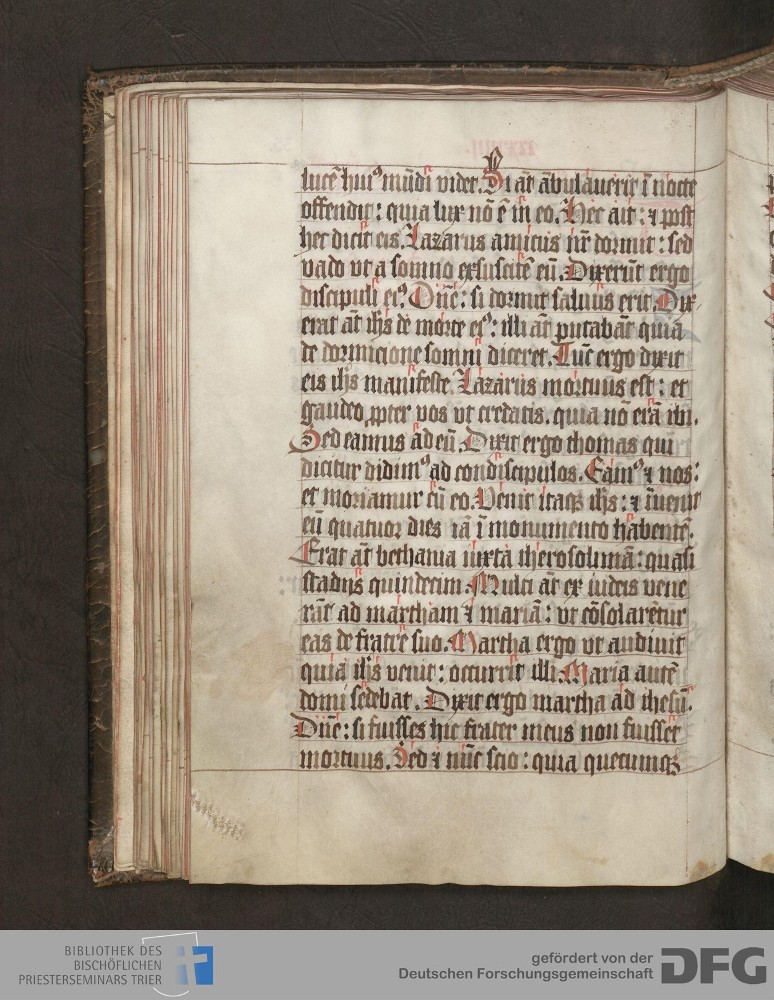 lucē hui⁹ mūdi videt. Si āt ābulauerit ī nocte
offendit: quia lux nō ē in eo. Hec ait: ⁊ post
hec dicit eis. Lazarus amicus nr̄ dormit: sed
vado vt a somno exsuscitē eū. Dixerūt ergo
discipuli ei⁹. Dn̄e: si dormit saluus erit. Dix
erat āt ih̄s de morte ei⁹: illi āt putabāt quia
de dormicione somni diceret. Tūc ergo dixit
eis ih̄s manifeste. Lazarus mortuus est: et
gaudeo ꝓpter vos vt credatis. quia nō erā ibi.
Sed eamus ad eū. Dixit ergo thomas qui
dicitur didim⁹ ad condiscipulos. Eam⁹ ⁊ nos:
et moriamur cū eo. Venit itaqꝫ ih̄s: ⁊ īuenit
eū quatuor dies iā ī monumento habentē.
Erat āt bethania iuxta iherosolimā: quasi
stadijs quindecim. Multi āt ex iudeis vene
rāt ad martham ⁊ mariā: vt cōsolarētur
eas de fratre suo. Martha ergo vt audiuit
quia ih̄s venit: occurrit illi. Maria autē
domi sedebat. Dixit ergo martha ad ihesū.
Dn̄e: si fuisses hic frater meus non fuisset
mortuus. Sed ⁊ nūc scio: quia quecumqꝫ
BIBLIOTHEK DES
BISCHÖFLICHEN
PRIESTERSEMINARS TRIER
gefördert von der
Deutschen Forschungsgemeinschaft
DFG